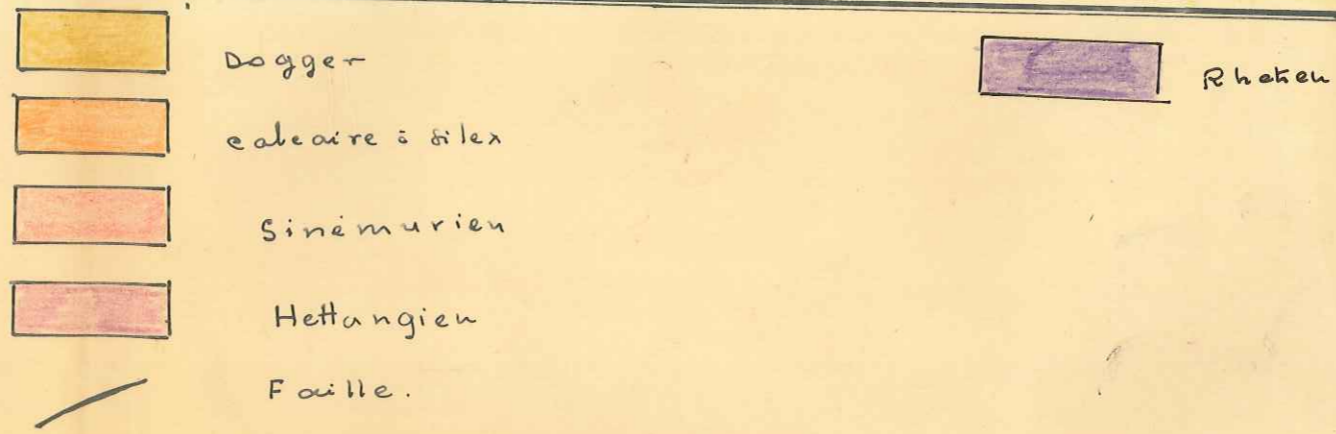 Dogger
calcaire à silex
Sinémurien
Hettangien
Faille.
Rhetien